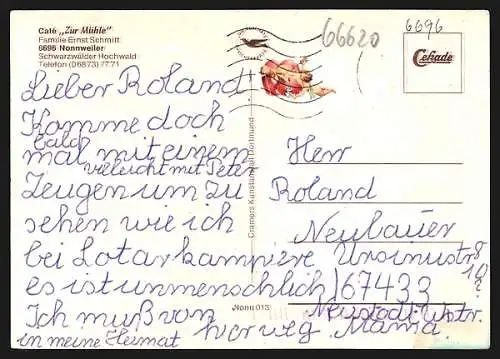 Café „Zur Mühle"
Familie Ernst Schmitt
6696 Nonnweiler
Schwarzwälder Hochwald
Telefon (06873) 7771
66620
6696
Cekade
Lieber Roland!
Komme doch
bald
mal mit einem
vieleicht mit Peter
Zeugen um zu
sehen wie ich
bei Lotar kampiere
es ist unmenschlich
Ich muß von
hier weg. Mama
in meine Heimat
Cramers Kunstanstalt Dortmund
Nonn 013
Herr
Roland
Neubauer
Ursinusstr 8
67433
Neustadt Wstr.